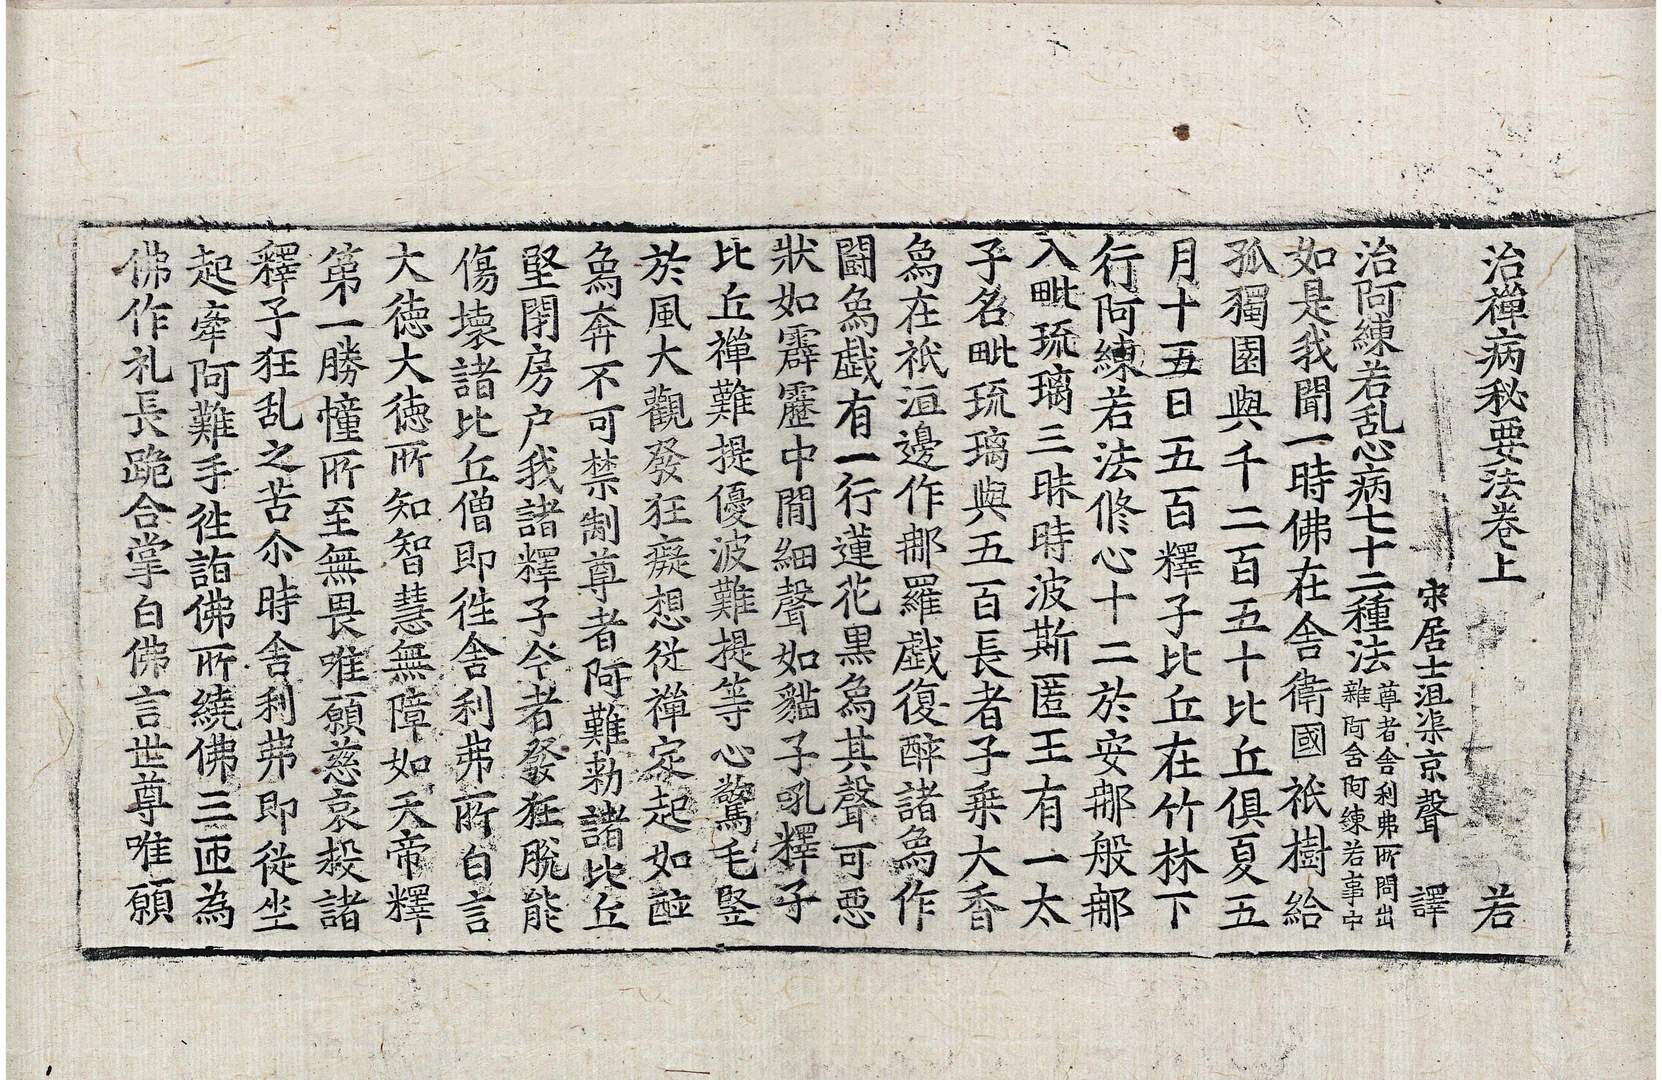 治禪病秘要法卷上 若
宋居士沮渠京聲 譯
治阿練若乱心病七十二種法 尊者舍利弗所問出 雜阿含阿練若事中
如是我聞一時佛在舍衛國祇樹給
孤獨園與千二百五十比丘俱夏五
月十五日五百釋子比丘在竹林下
行阿練若法修心十二於安那般那
入毗琉璃三昧時波斯匿王有一太
子名毗琉璃與五百長者子乗大香
象在祇洹邊作那羅戲復醉諸象作
鬪象戲有一行蓮花黑象其聲可惡
狀如霹靂中間細聲如貓子吼釋子
比丘禪難提優波難提等心驚毛竪
於風大觀發狂癡想從禪定起如醉
象奔不可禁制尊者阿難勑諸比丘
堅閉房户我諸釋子今者發狂脫能
傷壞諸比丘僧即徃舍利弗所白言
大徳大徳所知智慧無障如天帝釋
第一勝幢所至無畏唯願慈哀救諸
釋子狂乱之苦尒時舍利弗即從坐
起牽阿難手徃詣佛所繞佛三匝為
佛作礼長跪合掌白佛言世尊唯願